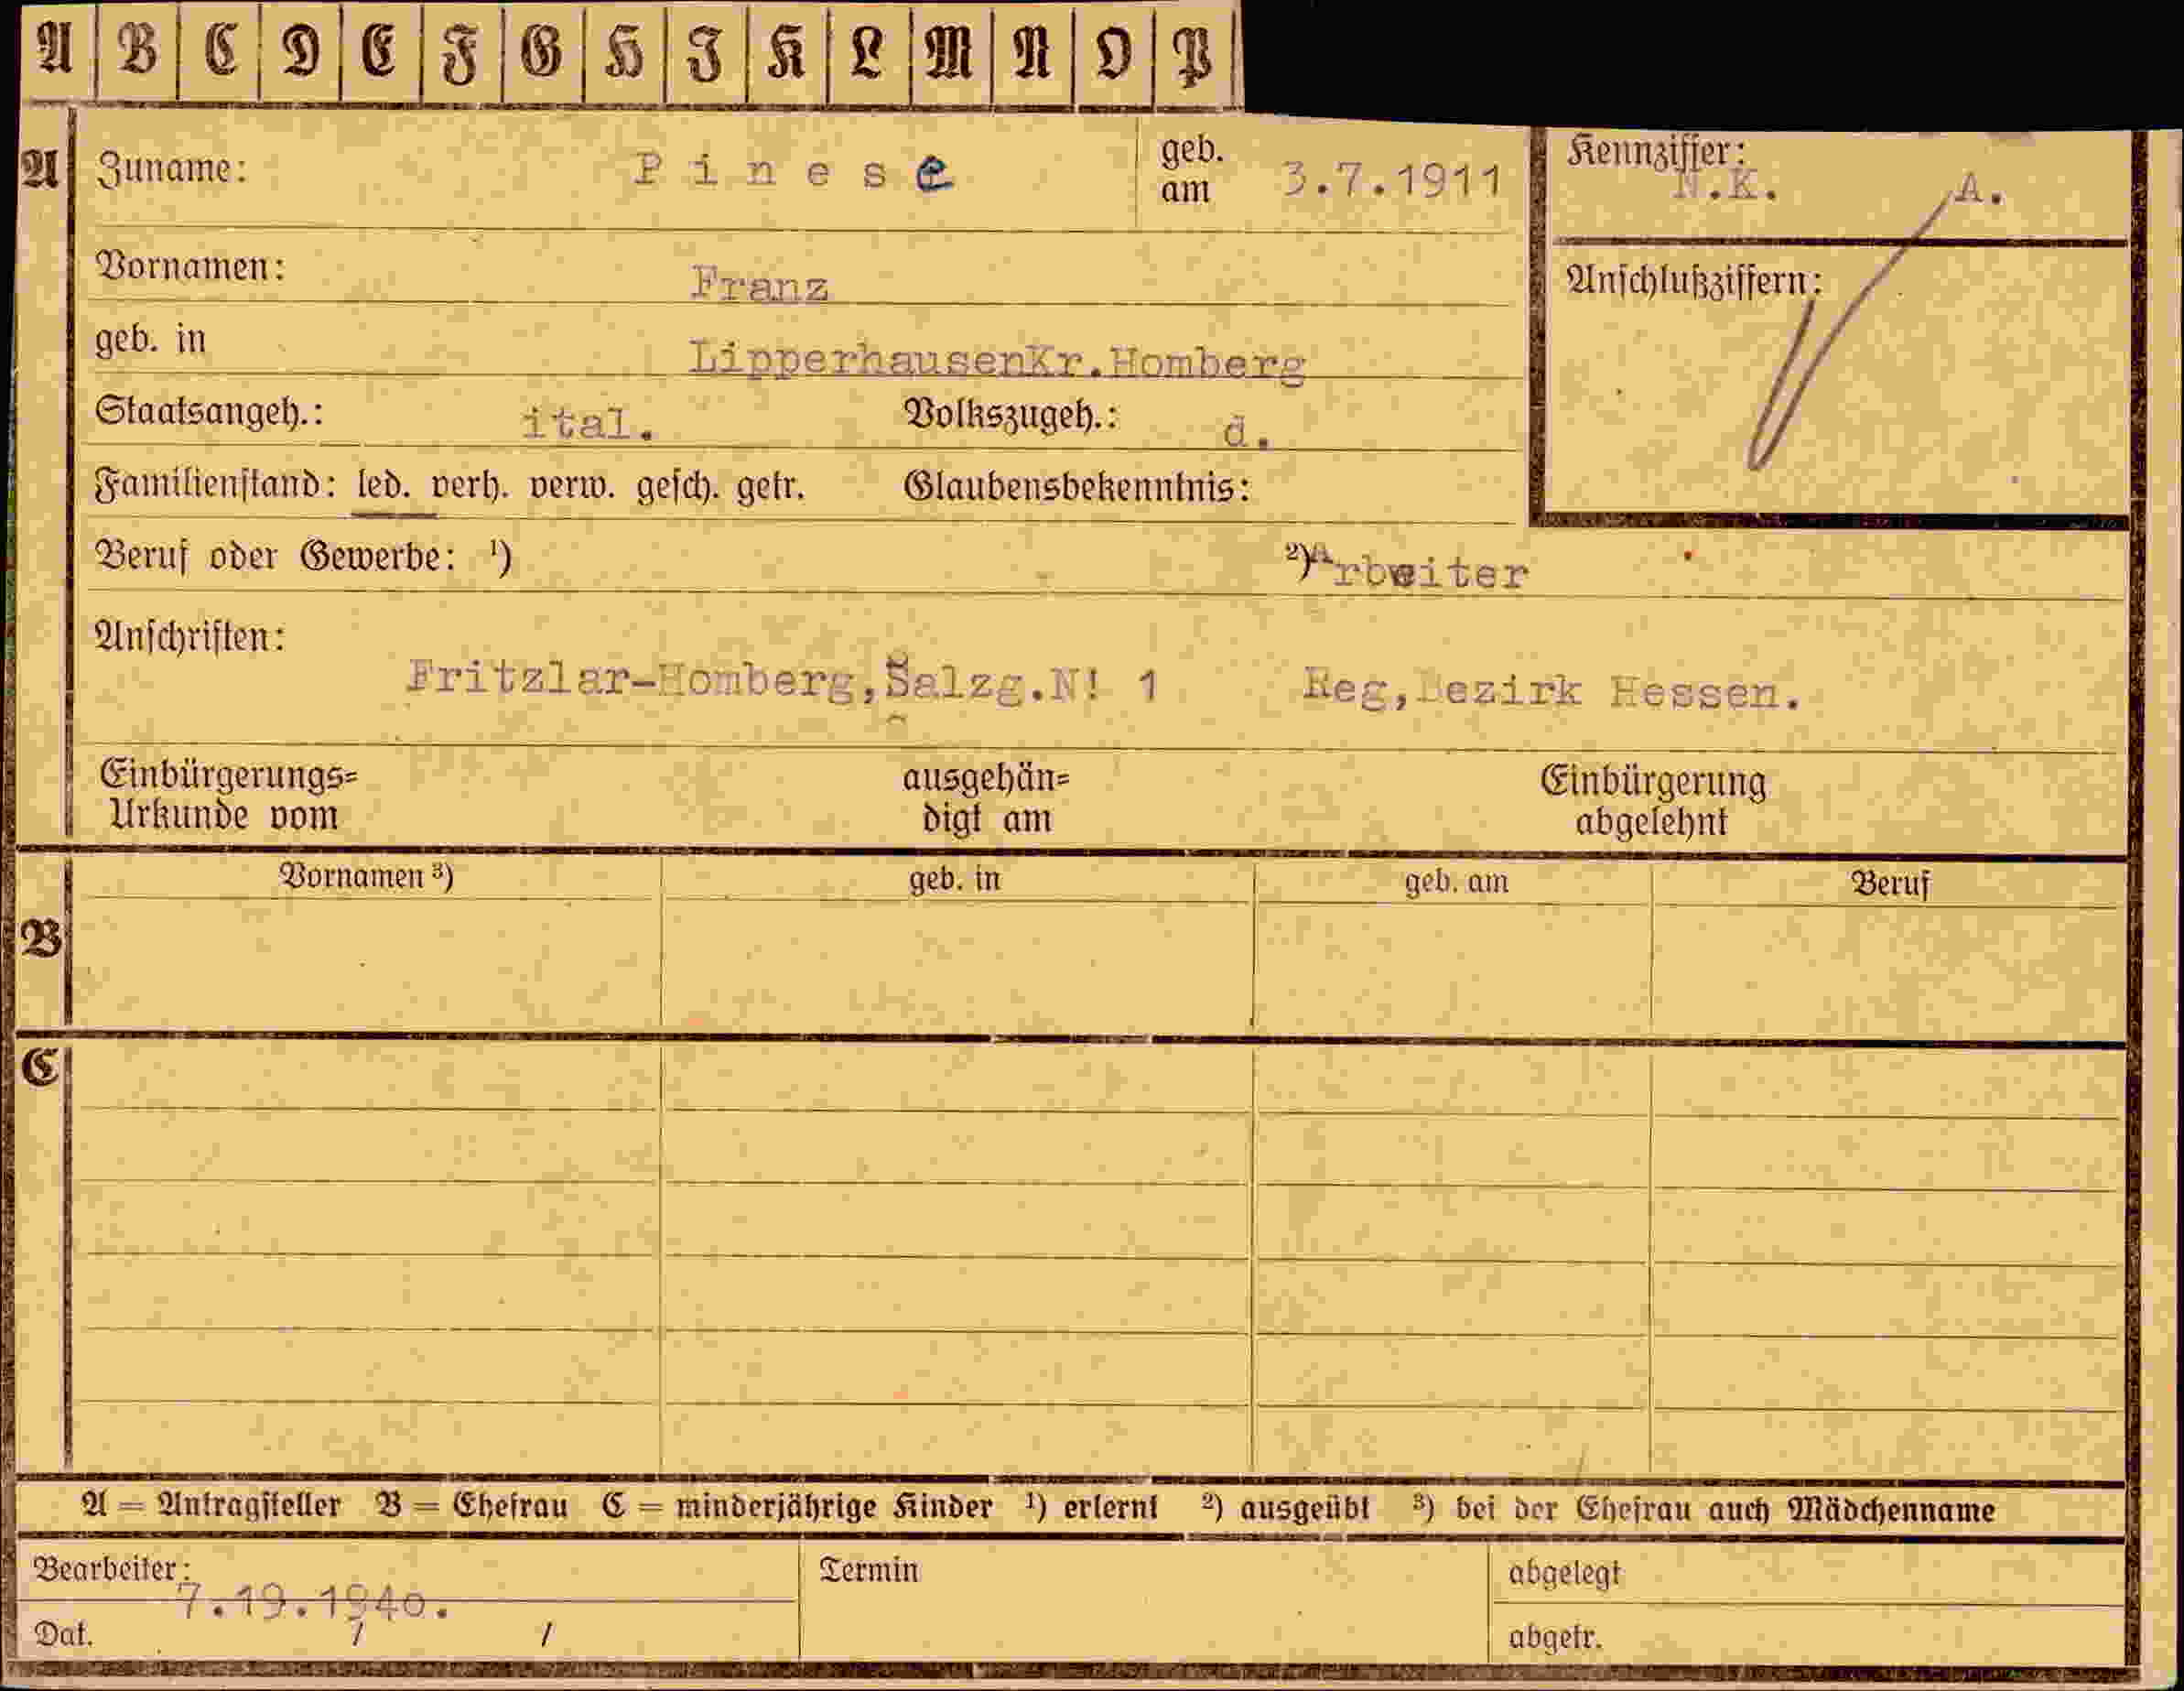 A B C D E F G H I K L M N O P
A Zuname: Pinese geb. am 3.7.1911 Kennziffer: N.K. A.
Vornamen: Franz Anschlußziffern:
geb. in LipperhausenKr.Homberg
Staatsangeh.: ital. Volkszugeh.: d.
Familienstand: led. verh. verw. gesch. getr. Glaubensbekenntnis:
Beruf oder Gewerbe: ¹) ²) Arbeiter
Anschriften:
Fritzlar-Homberg,Salzg.N! 1 Reg,Bezirk Hessen.
Einbürgerungs= ausgehän= Einbürgerung
Urkunde vom digt am abgelehnt
Vornamen ³) geb. in geb. am Beruf
B
C
A = Antragsteller B = Ehefrau C = minderjährige Kinder ¹) erlernt ²) ausgeübt ³) bei der Ehefrau auch Mädchenname
Bearbeiter: Termin abgelegt
7.19.1940.
Dat. / / abgetr.